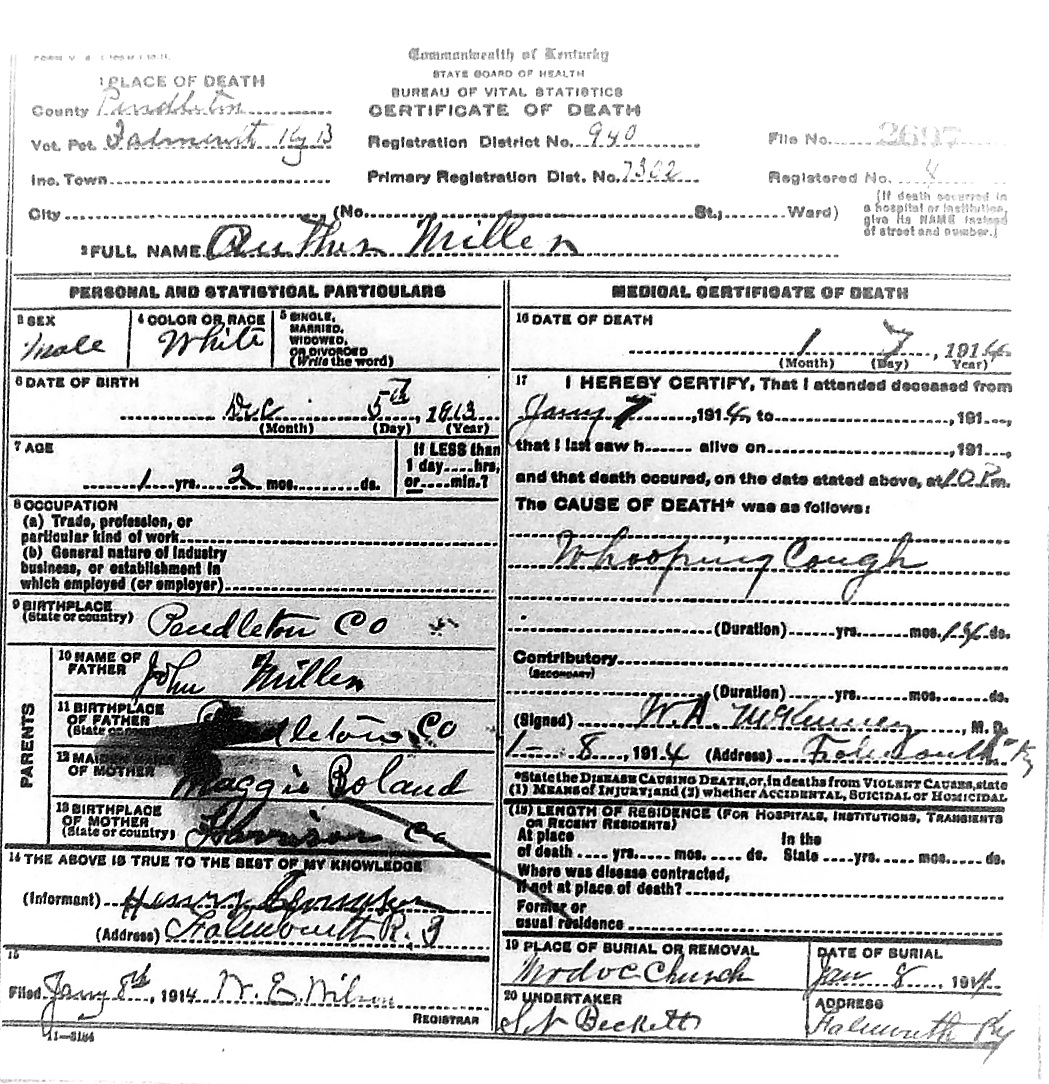 Commonwealth of Kentucky
STATE BOARD OF HEALTH
BUREAU OF VITAL STATISTICS
CERTIFICATE OF DEATH
1 PLACE OF DEATH
County Pendleton
Vot. Pct. Falmouth Ky B
Inc. Town
Registration District No. 940
Primary Registration Dist. No. 7302
File No. 2697
Registered No. 4
(If death occurred in a hospital or institution, give its NAME instead of street and number.)
City (No. St., Ward)
2 FULL NAME Miller
PERSONAL AND STATISTICAL PARTICULARS
3 SEX
Male
4 COLOR OR RACE
White
5 SINGLE,
MARRIED,
WIDOWED,
OR DIVORCED
(Write the word)
6 DATE OF BIRTH
Dec 5th, 1913
(Month) (Day) (Year)
7 AGE
1 yrs. 2 mos. ds.
If LESS than
1 day....hrs,
or....min.?
8 OCCUPATION
(a) Trade, profession, or
particular kind of work
(b) General nature of industry
business, or establishment in
which employed (or employer)
9 BIRTHPLACE
(State or country) Pendleton Co
PARENTS
10 NAME OF
FATHER John Miller
11 BIRTHPLACE
OF FATHER
dleton Co
12 MAIDEN NAME
OF MOTHER Maggie Boland
13 BIRTHPLACE
OF MOTHER
(State or country) Harrison Co
14 THE ABOVE IS TRUE TO THE BEST OF MY KNOWLEDGE
(Informant) Henry
(Address) Falmouth R. 3
15
Filed Jany 8th, 1914 W. E. Wilson
REGISTRAR
11—3184
MEDICAL CERTIFICATE OF DEATH
16 DATE OF DEATH
1 7, 1914
(Month) (Day) Year)
17 I HEREBY CERTIFY, That I attended deceased from
Jany 7, 1914, to , 191
that I last saw h alive on , 191
and that death occured, on the date stated above, at 10 P m.
The CAUSE OF DEATH* was as follows:
Whooping Cough
(Duration) yrs. mos. ds.
Contributory
(SECONDARY)
(Duration) yrs. mos. ds.
(Signed) W. A. McKenney, M. D.
1- 8, 1914 (Address) Falmouth Ky
*State the DISEASE CAUSING DEATH, or, in deaths from VIOLENT CAUSES, state
(1) MEANS OF INJURY; and (2) whether ACCIDENTAL, SUICIDAL or HOMICIDAL
(18) LENGTH OF RESIDENCE (FOR HOSPITALS, INSTITUTIONS, TRANSIENTS
OR RECENT RESIDENTS)
At place In the
of death yrs. mos. ds. State yrs. mos. ds.
Where was disease contracted,
If not at place of death?
Former or
usual residence
19 PLACE OF BURIAL OR REMOVAL
Modoc Church
DATE OF BURIAL
Jan 8, 1914
20 UNDERTAKER
Beckett
ADDRESS
Falmouth Ky